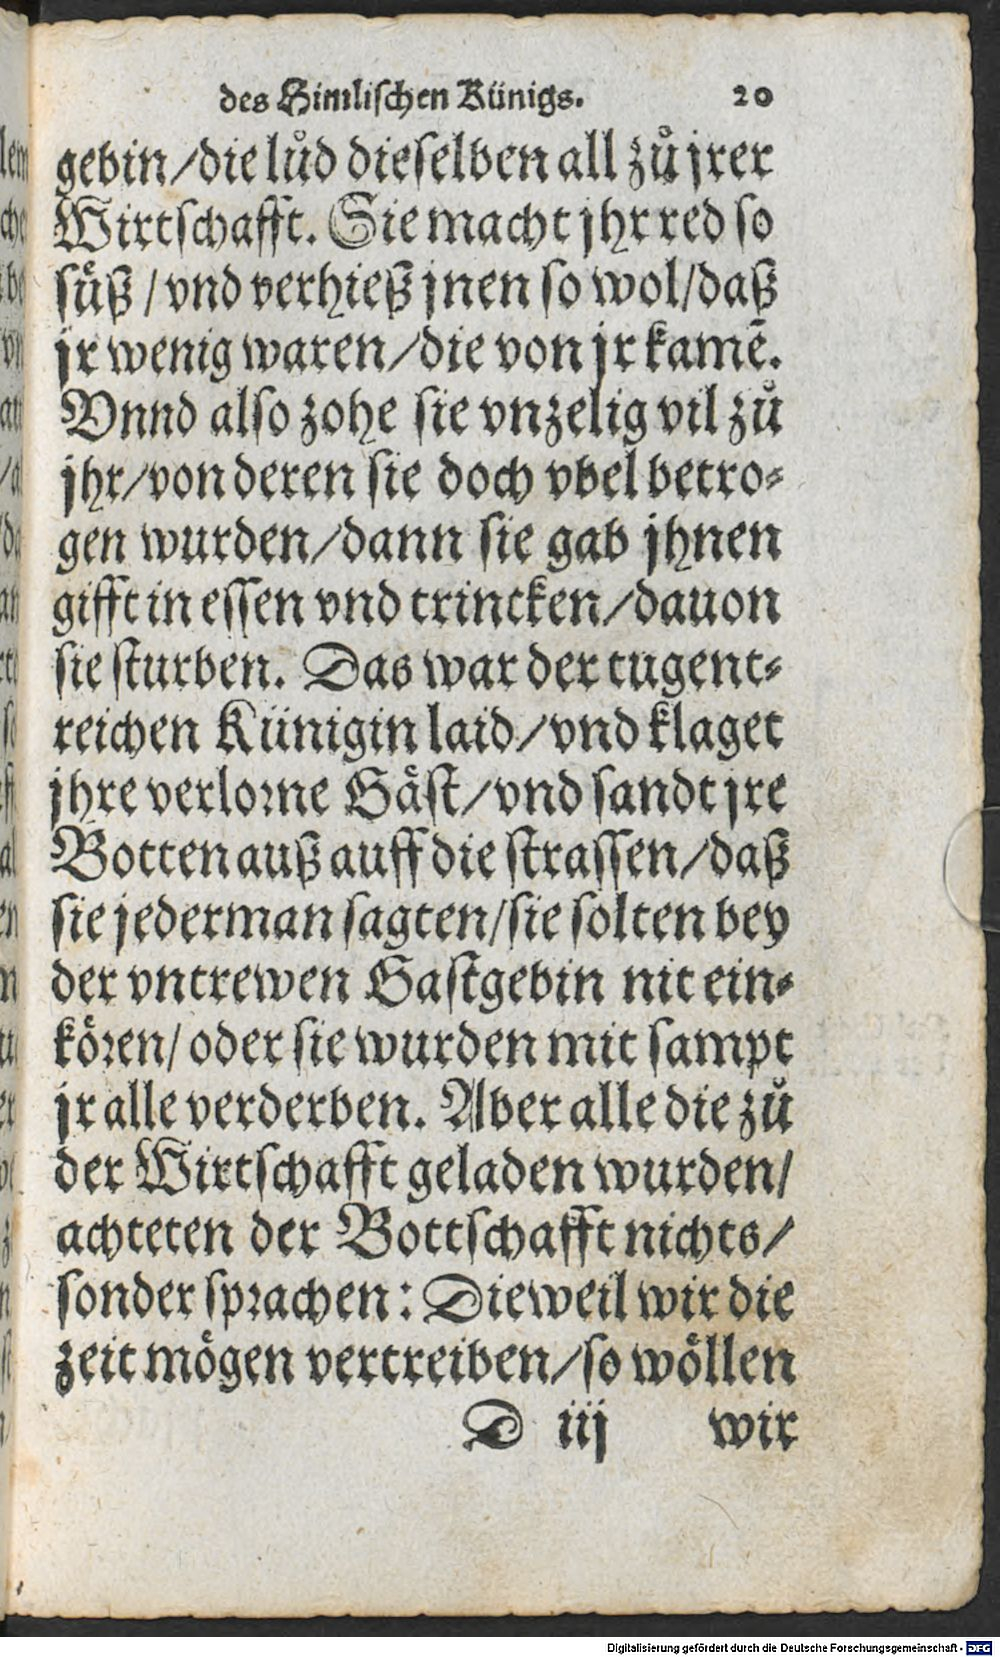 des Himlischen Künigs. 20
gebin/die lůd dieselben all zů jrer
Wirtschafft. Sie macht jhr red so
süß/vnd verhieß jnen so wol/daß
jr wenig waren/die von jr kamē.
Vnnd also zohe sie vnzelig vil zů
jhr/von deren sie doch vbel betro⸗
gen wurden/dann sie gab jhnen
gifft in essen vnd trincken/dauon
sie sturben. Das war der tugent⸗
reichen Künigin laid/vnd klaget
jhre verlorne Gäst/vnd sandt jre
Botten auß auff die strassen/daß
sie jederman sagten/sie solten bey
der vntrewen Gastgebin nit ein⸗
kören/oder sie wurden mit sampt
jr alle verderben. Aber alle die zů
der Wirtschafft geladen wurden/
achteten der Bottschafft nichts/
sonder sprachen: Dieweil wir die
zeit mögen vertreiben/so wöllen
D iij wir
Digitalisierung gefördert durch die Deutsche Forschungsgemeinschaft - DFG